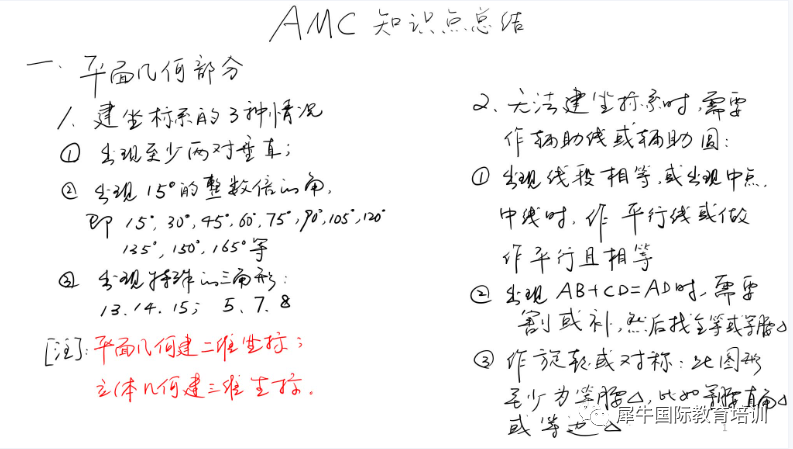 AMC 知识点总结
一. 平面几何部分
1. 建坐标系的3种情况
① 出现至少两对垂直;
② 出现15°的整数倍的角,
即 15°, 30°, 45°, 60°, 75°, 90°, 105°, 120°
135°, 150°, 165° 等
③ 出现特殊的三角形:
13. 14. 15; 5. 7. 8
[注]: 平面几何建二维坐标;
立体几何建三维坐标.
2. 无法建坐标系时, 需要
作辅助线或辅助圆:
① 出现线段相等, 或出现中点,
中线时, 作平行线或做
作平行且相等
② 出现 AB+CD=AD时, 需要
割或补, 然后找全等或等腰△
③ 作旋转或对称: 此图形
至少为等腰△, 比如等腰直角△
或等边△
犀牛国际教育培训
1